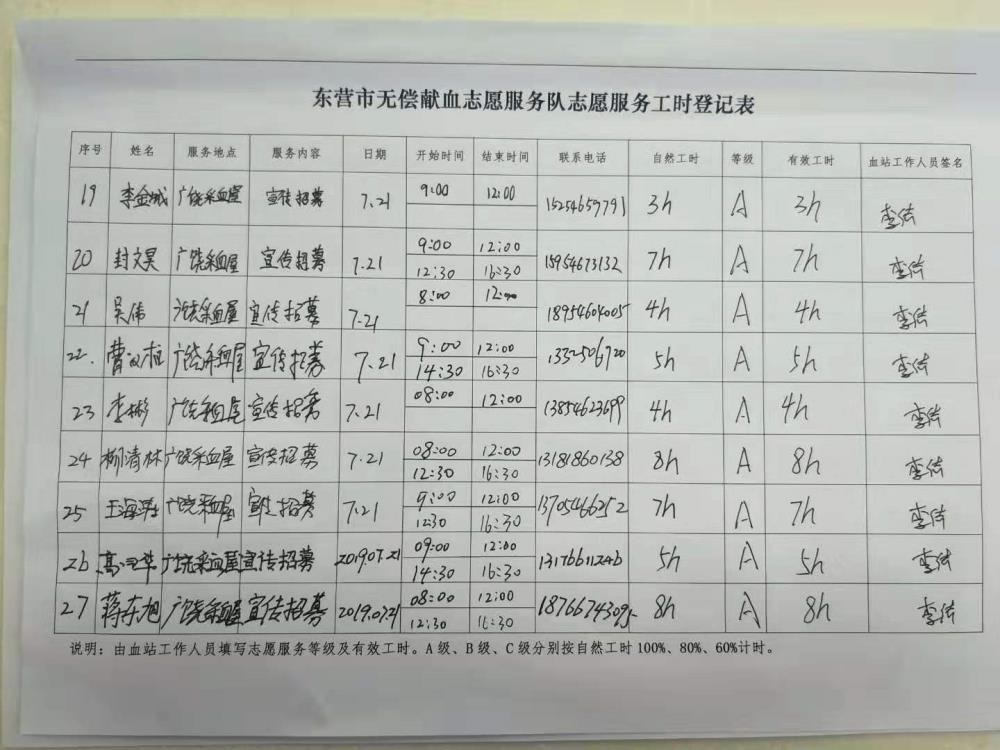 东营市无偿献血志愿服务队志愿服务工时登记表
序号 姓名 服务地点 服务内容 日期 开始时间 结束时间 联系电话 自然工时 等级 有效工时 血站工作人员签名
19 李金城 广饶采血屋 宣传招募 7.21 9:00 12:00 15254659791 3h A 3h 李倩
20 封文昊 广饶采血屋 宣传招募 7.21 9:00 12:00 15954673132 7h A 7h 李倩
12:30 16:30
21 吴伟 广饶采血屋 宣传招募 7.21 8:00 12:00 18954604005 4h A 4h 李倩
22. 广饶采血屋 宣传招募 7.21 9:00 12:00 1332506720 5h A 5h 李倩
14:30 16:30
23 李彬 广饶采血屋 宣传招募 7.21 08:00 12:00 13854623699 4h A 4h 李倩
24 柳清林 广饶采血屋 宣传招募 7.21 08:00 12:00 13181860138 8h A 8h 李倩
12:30 16:30
25 广饶采血屋 宣传招募 7.21 9:00 12:00 13705466252 7h A 7h 李倩
12:30 16:30
26 广饶采血屋 宣传招募 2019.07.21 09:00 12:00 5h A 5h 李倩
14:30 16:30
27 蒋东旭 广饶采血屋 宣传招募 2019.07.21 08:00 12:00 8h A 8h 李倩
12:30 16:30
说明：由血站工作人员填写志愿服务等级及有效工时。A级、B级、C级分别按自然工时100%、80%、60%计时。